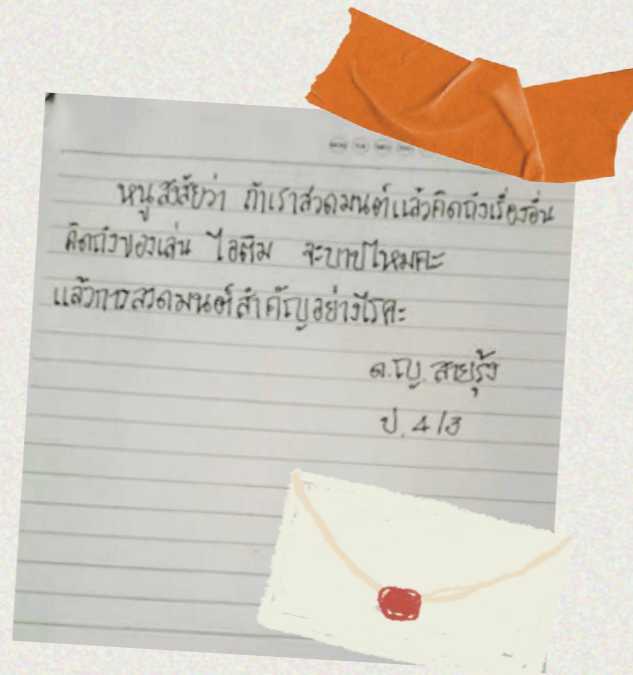 หนูสงสัยว่า ถ้าเราสวดมนต์แล้วคิดถึงเรื่องอื่น
คิดถึงของเล่น ไอติม จะบาปไหมคะ
แล้วการสวดมนต์สำคัญอย่างไรคะ
ด.ญ. สายรุ้ง
ป. 4/3